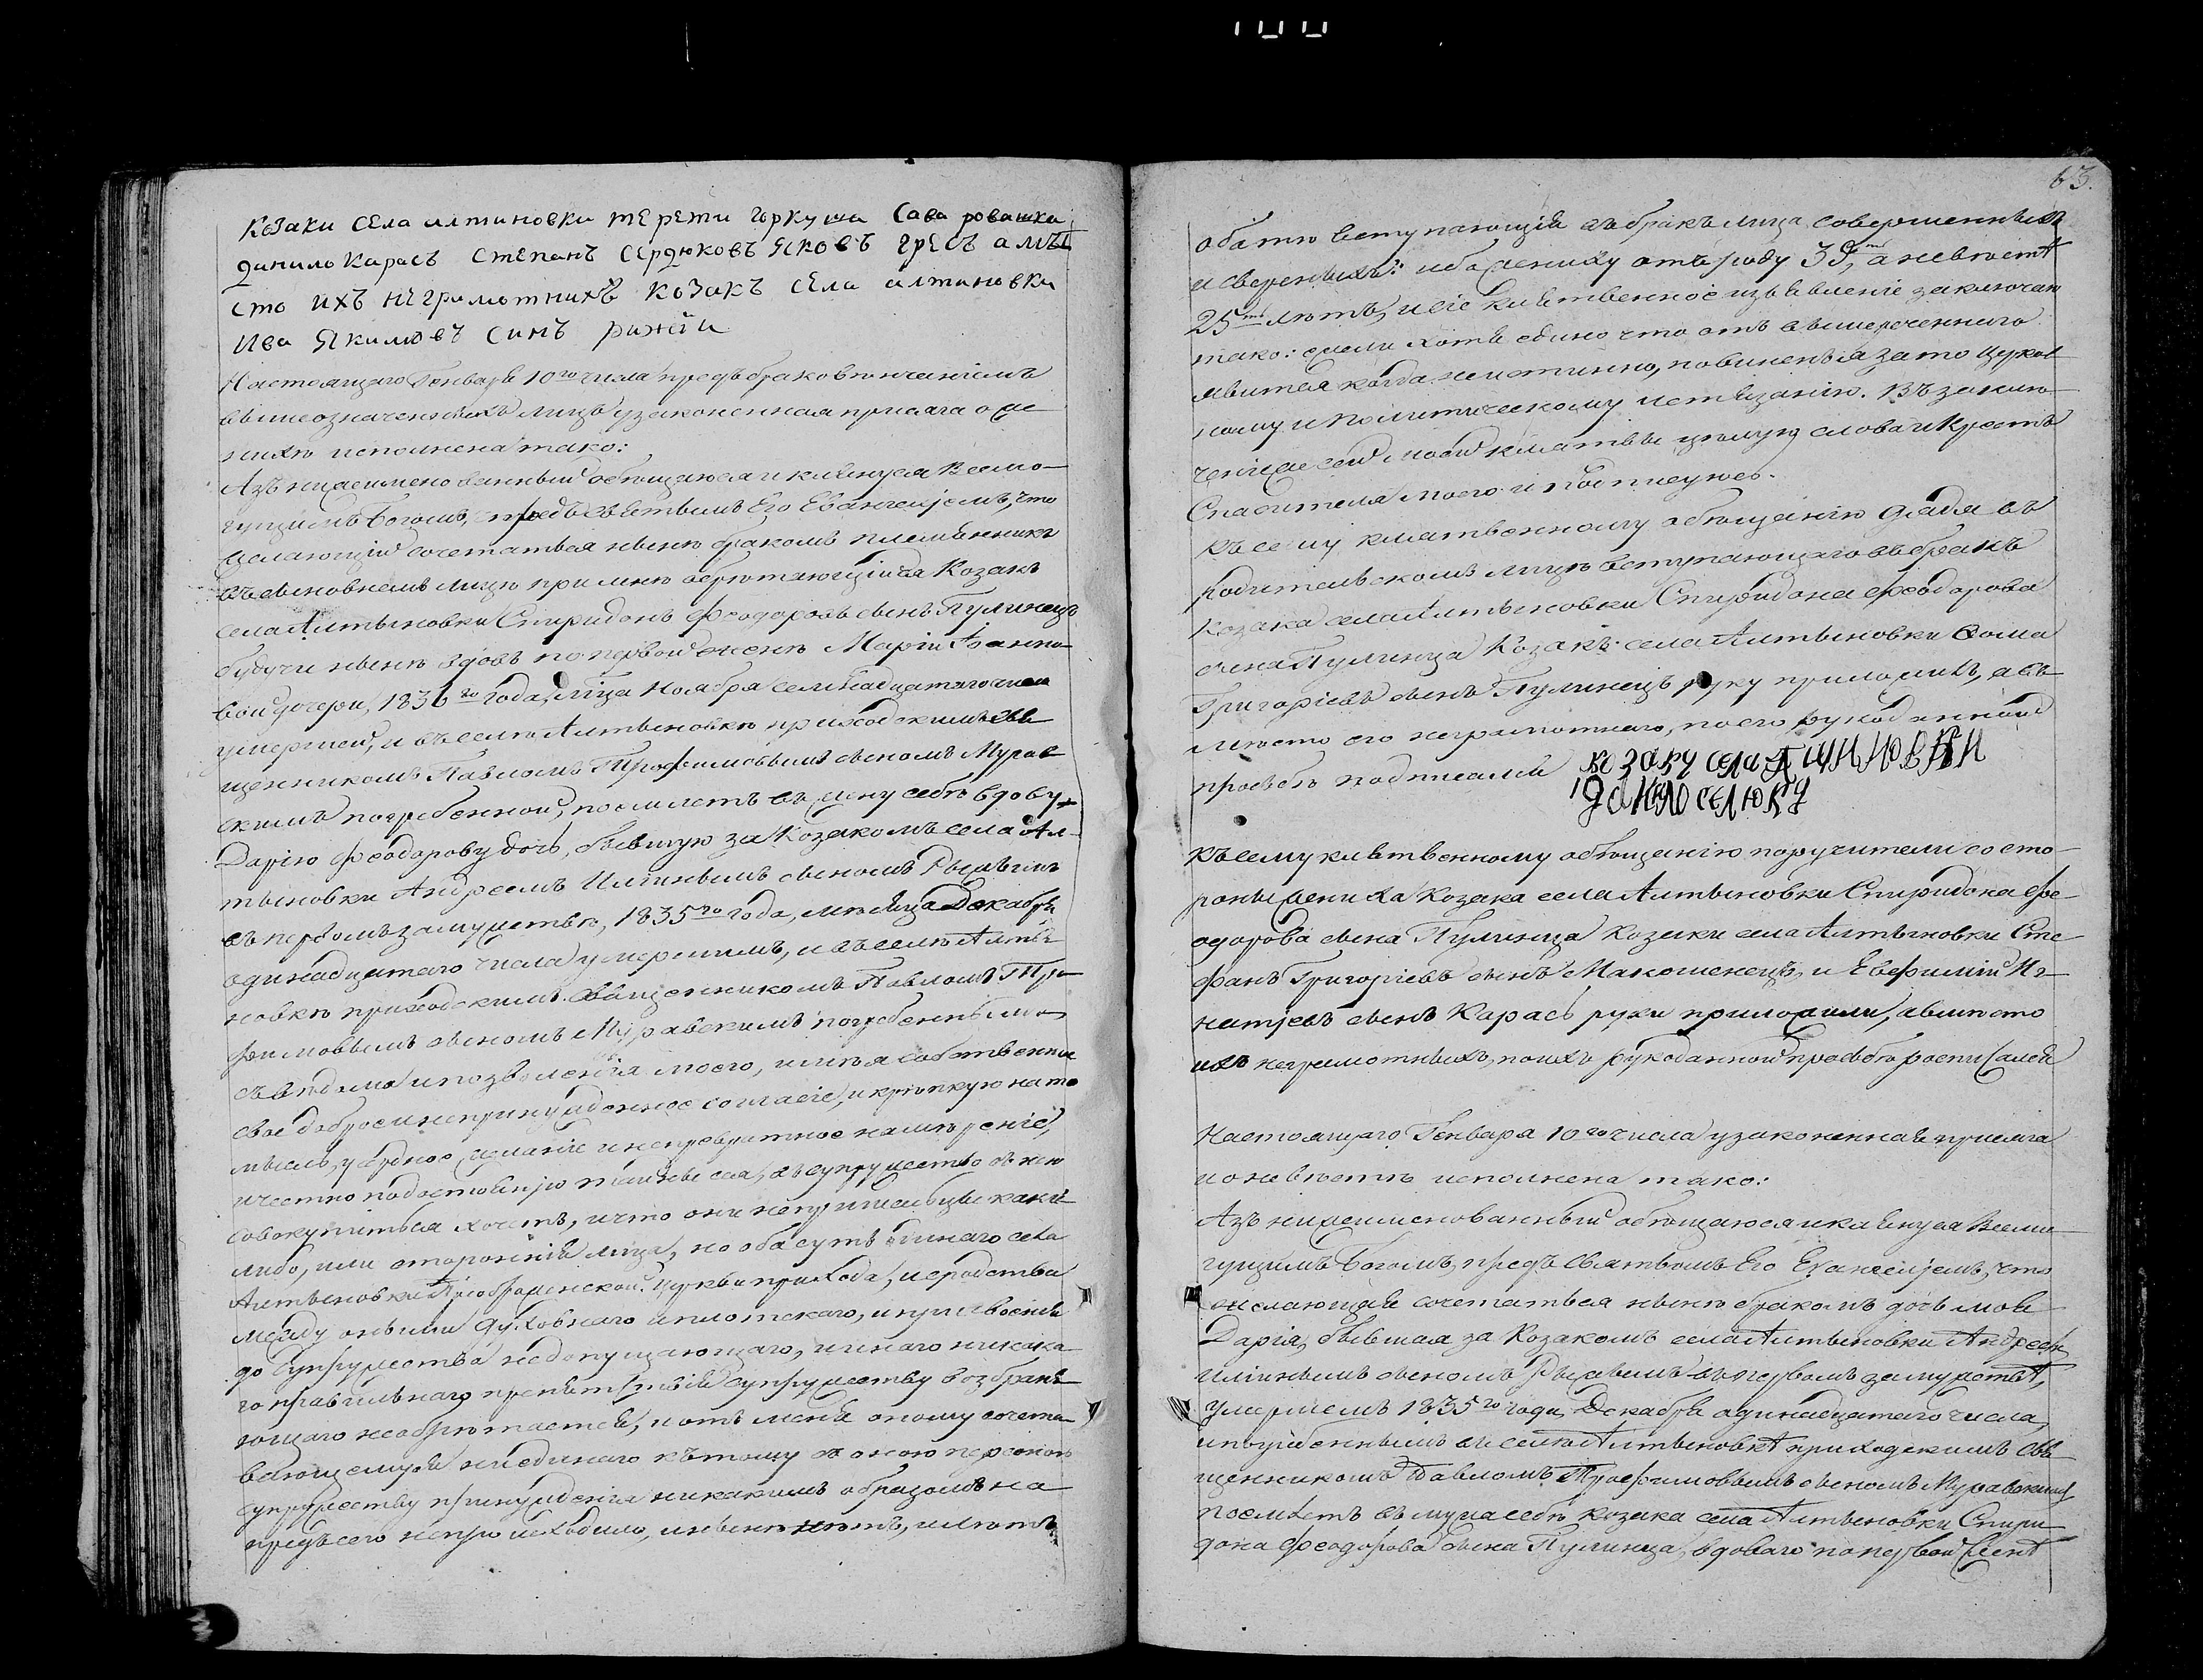 козаки села алтиновки терети гъркуша Сава ровашка
данило Карасъ степанъ сердюковъ яковъ гресъ а мѣ
сто ихъ неграмотнихъ козакъ села алтиновки
ива якимовъ синъ рижии
Настоящаго Генваря 10го числа предъ браковѣнчаніемъ
вышеозначенныхъ лицъ узаконенная присяга о же
нихѣ исполнена тако:
Азъ нижеименованный обѣщаюся и клянуся Всемо-
гущимъ Богомъ, предъ Святымъ Его Евангеліемъ, что
желающій сочетаться нынѣ бракомъ племянникъ
въ сыновнемъ лицѣ при мнѣ обрѣтающійся Козакъ
села Алтыновки Спиридонъ Феодоровъ сынъ Пулинецъ
будучи нынѣ вдовъ по первой женѣ Маріи Іоанно-
вой дочери, 1836го года, мѣсца Ноября семнадцатаго числа
умершей, и въ селѣ Алтыновкѣ приходскимъ свя
щенникомъ Павломъ Трофимовымъ сыномъ Мурав
скимъ погребенной, поемлетъ въ жену себѣ вдову
Дарію Феодорову дочь, бывшую за Козакомъ села Ал-
тыновки Андреемъ Ильинымъ сыномъ Рыжимъ
въ первомъ замужствѣ, 1835го года, мѣсяца Декабря
одинадцатаго числа умершимъ, и въ селѣ Алты-
новкѣ приходскимъ Священникомъ Павломъ Тро-
фимовымъ сыномъ Муравскимъ погребеннымъ
съ вѣдома и позволенія моего, имѣя собственное
свое доброе и непринужденное согласіе, и крѣпкую на то
мысль, усердное желаніе и непревратное намѣреніе,
и честно по достоянію тайны сея, въ супружество съ нею
совокупиться хочетъ, и что они не пришельцы какія
либо, или стороннія лица, но оба суть единаго села
Алтыновки Преображенской Церкви прихода, и сродства
между оными духовнаго и плотскаго, и присвоенія
до супружества недопущающаго, и инаго никака
го правильнаго препятствія супружеству возбраня
ющаго необрѣтается, и отъ мене оному сочета
вающемуся ни единаго къ тому съ оною персоною
супружеству принужденія никакимъ образомъ на
предъ сего непроисходило, и нынѣ нѣтъ, и лѣта
63.
оба то вступающія въ бракъ лица совершенныхъ
и сверенныхъ: ибо жениху отъ роду 39ть, а невѣстѣ
25ть лѣтъ, и сіе клятвенное изъявленіе заключаю
тако: ежели хотя едино что отъ вышереченнаго
явится когда неистинно, повиненъ я за то церков
ному и политическому истязанію. Въ заклю-
ченіи же сей моей клятвы цѣлую слова и Крестъ
Спасителя моего и подписуюсь.
Къ сему клятвенному обѣщанію дядя въ
родительскомъ лицѣ вступающаго въ бракъ
козака села Алтыновки Спиридона Феодорова
сына Пулинца Козакъ села Алтыновки Фома
Григоріевъ сынъ Пулинецъ руку приложилъ, а въ
мѣсто его неграмотнаго, по его рукоданной
прозьбѣ подписался
Къ сему клятвенному обѣщанію поручители со сто-
роны жениха Козака села Алтыновки Спиридона Фе-
одорова сына Пулинца Козаки села Алтыновки Сте
фанъ Григоріевъ сынъ Макошенецъ, и Евфимій Иг-
натіевъ сынъ Карась руки приложили, а вмѣсто
ихъ неграмотныхъ, по ихъ рукоданной прозьбѣ росписался
Настоящаго Генваря 10го числа узаконенная присяга
и о невѣстѣ исполнена тако:
Азъ нижеименованный обѣщаюся и клянуся Всемо
гущимъ Богомъ, предъ Святымъ Его Евангеліемъ, что
желающая сочетаться нынѣ бракомъ дочь моя
Дарія, бывшая за Козакомъ села Алтыновки Андреемъ
Ильинымъ сыномъ Рыжимъ въ первомъ замужствѣ,
умершемъ 1835го года, Декабря одинадцатаго числа,
и погребеннымъ въ селѣ Алтыновкѣ приходскимъ Свя
щенникомъ Павломъ Трофимовымъ сыномъ Муравскимъ
поемлетъ въ мужа себѣ козака села Алтыновки Спири
дона Феодорова сына Пулинца, вдоваго по первой женѣ